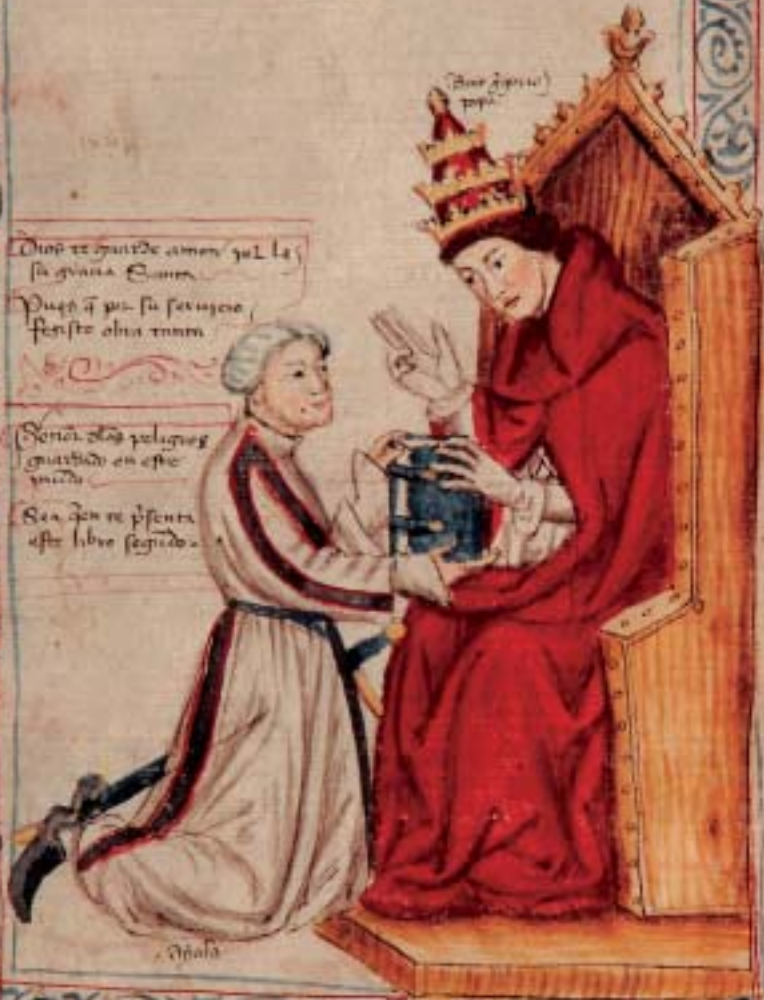 San g̃gorio
papa
Dios te guarde amen por la
su gracia Santa
Pues q̃ por su servicio
fesiste obra tanta
Señor delos peligros
guardado en este
mũdo
Sea q̃en te p̃senta
este libro segũdo
Ayala